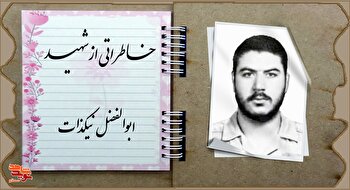 خاطراتی از شهید
ابوالفضل نیکذات